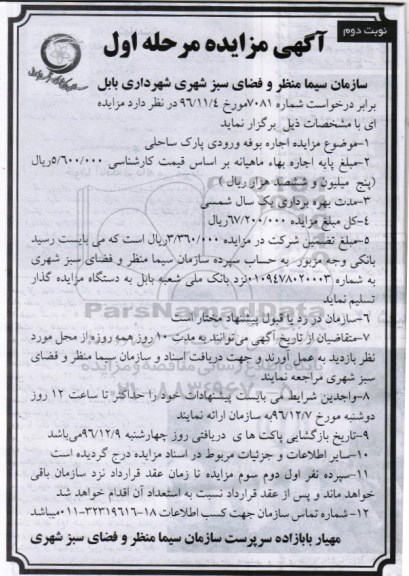 نوبت دوم
آگهی مزایده مرحله اول
سازمان سیما منظر و فضای سبز شهری شهرداری بابل
برابر درخواست شماره ۷۰۸۱مورخ ۹۶/۱۱/۴ در نظر دارد مزایده
ای با مشخصات ذیل برگزار نماید
۱-موضوع مزایده اجاره بوفه ورودی پارک ساحلی
۲-مبلغ پایه اجاره بهاء ماهیانه بر اساس قیمت کارشناسی ۵/۶۰۰/۰۰۰ریال
(پنج میلیون و ششصد هزار ریال )
۳-مدت بهره برداری یک سال شمسی
۴-کل مبلغ مزایده ۶۷/۲۰۰/۰۰۰ریال
۵-مبلغ تضمین شرکت در مزایده ۳/۳۶۰/۰۰۰ریال است که می بایست رسید
بانکی وجه مزبور به حساب سپرده سازمان سیما منظر و فضای سبز شهری
به شماره ۰۱۰۹۴۷۸۰۲۰۰۰۳نزد بانک ملی شعبه بابل به دستگاه مزایده گذار
تسلیم نماید
۶-سازمان در رد یا قبول پیشنهاد مختار است
ParsNamadData
۷-متقاضیان از تاریخ آگهی می‌توانند به مدت ۱۰ روز همه روزه از محل مورد
نظر بازدید به عمل آورند و جهت دریافت اسناد و سازمان سیما منظر و فضای
سبز شهری مراجعه نمایند
۸-واجدین شرایط می بایست پیشنهادات خود را حداکثر تا ساعت ۱۲ روز
دوشنبه مورخ ۹۶/۱۲/۷به سازمان ارائه نمایند
۹-تاریخ بازگشایی پاکت ها ی دریافتی روز چهارشنبه ۹۶/۱۲/۹می‌باشد
۱۰-سایر اطلاعات و جزئیات مربوط در اسناد مزایده درج گردیده است
۱۱-سپرده نفر اول دوم سوم مزایده تا زمان عقد قرارداد نزد سازمان باقی
خواهد ماند و پس از عقد قرارداد نسبت به استعداد آن اقدام خواهد شد
۱۲-شماره تماس سازمان جهت کسب اطلاعات ۱۸-۰۱۱-۳۲۳۱۹۶۱۶میباشد
مهیار بابازاده سرپرست سازمان سیما منظر و فضای سبز شهری